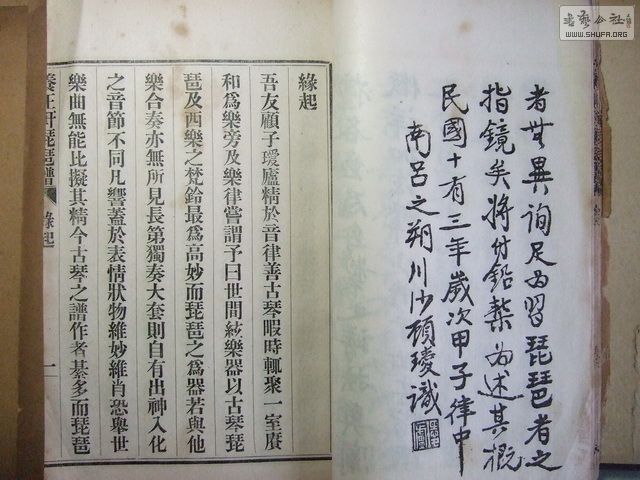 書藝公社
WWW.SHUFA.ORG
者無異詢足為習琵琶者之
指鏡矣將付鉛槧為述其概
民國十有三年歲次甲子律中
南呂之朔川沙顧瓊識
緣起
吾友顧子瓊廬精於音律善古琴暇時輒聚一室賡
和為樂旁及樂律嘗謂予曰世間絃樂器以古琴琵
琶及西樂之梵鈴最為高妙而琵琶之為器若與他
樂合奏亦無所見長第獨奏大套則自有出神入化
之音節不同凡響蓋於表情狀物維妙維肖恐舉世
樂曲無能比擬其精今古琴之譜作者綦多而琵琶
養正軒琵琶譜
緣起
一